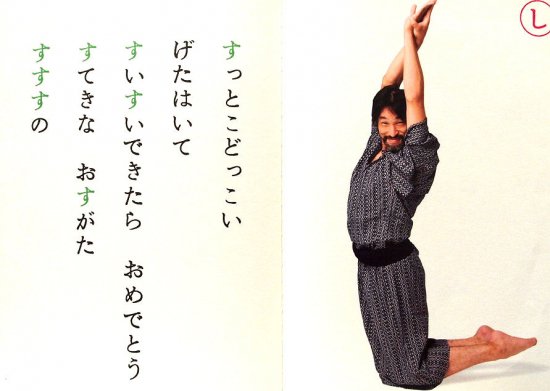 し
すっとこどっこい
げたはいて
すいすいできたら おめでとう
すてきな おすがた
すすすの